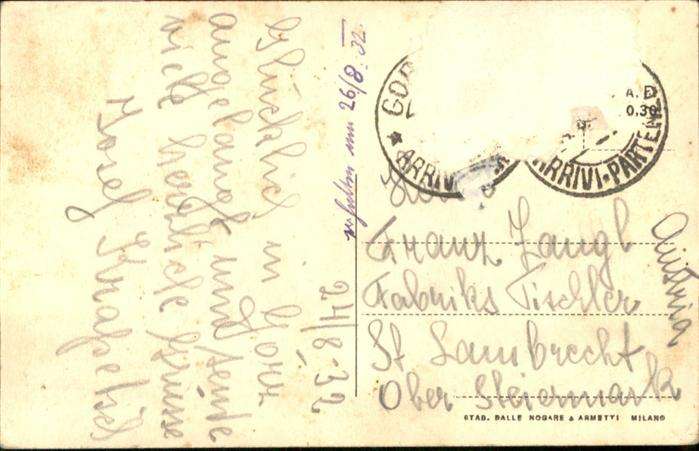 Glücklich in Görz
angelangt und sende
viele herzliche Grüsse
Josef Knapetič
24/8·32
erhalten am 26/8. 32.
GOR
ARRIVI
ARRIVI-PARTENZ
A. D
0.30
Herrn
Franz Zangl
Fabriks Tischler
St Lambrecht
Ober Steiermark
Austria
STAB. DALLE NOGARE & ARMETTI MILANO